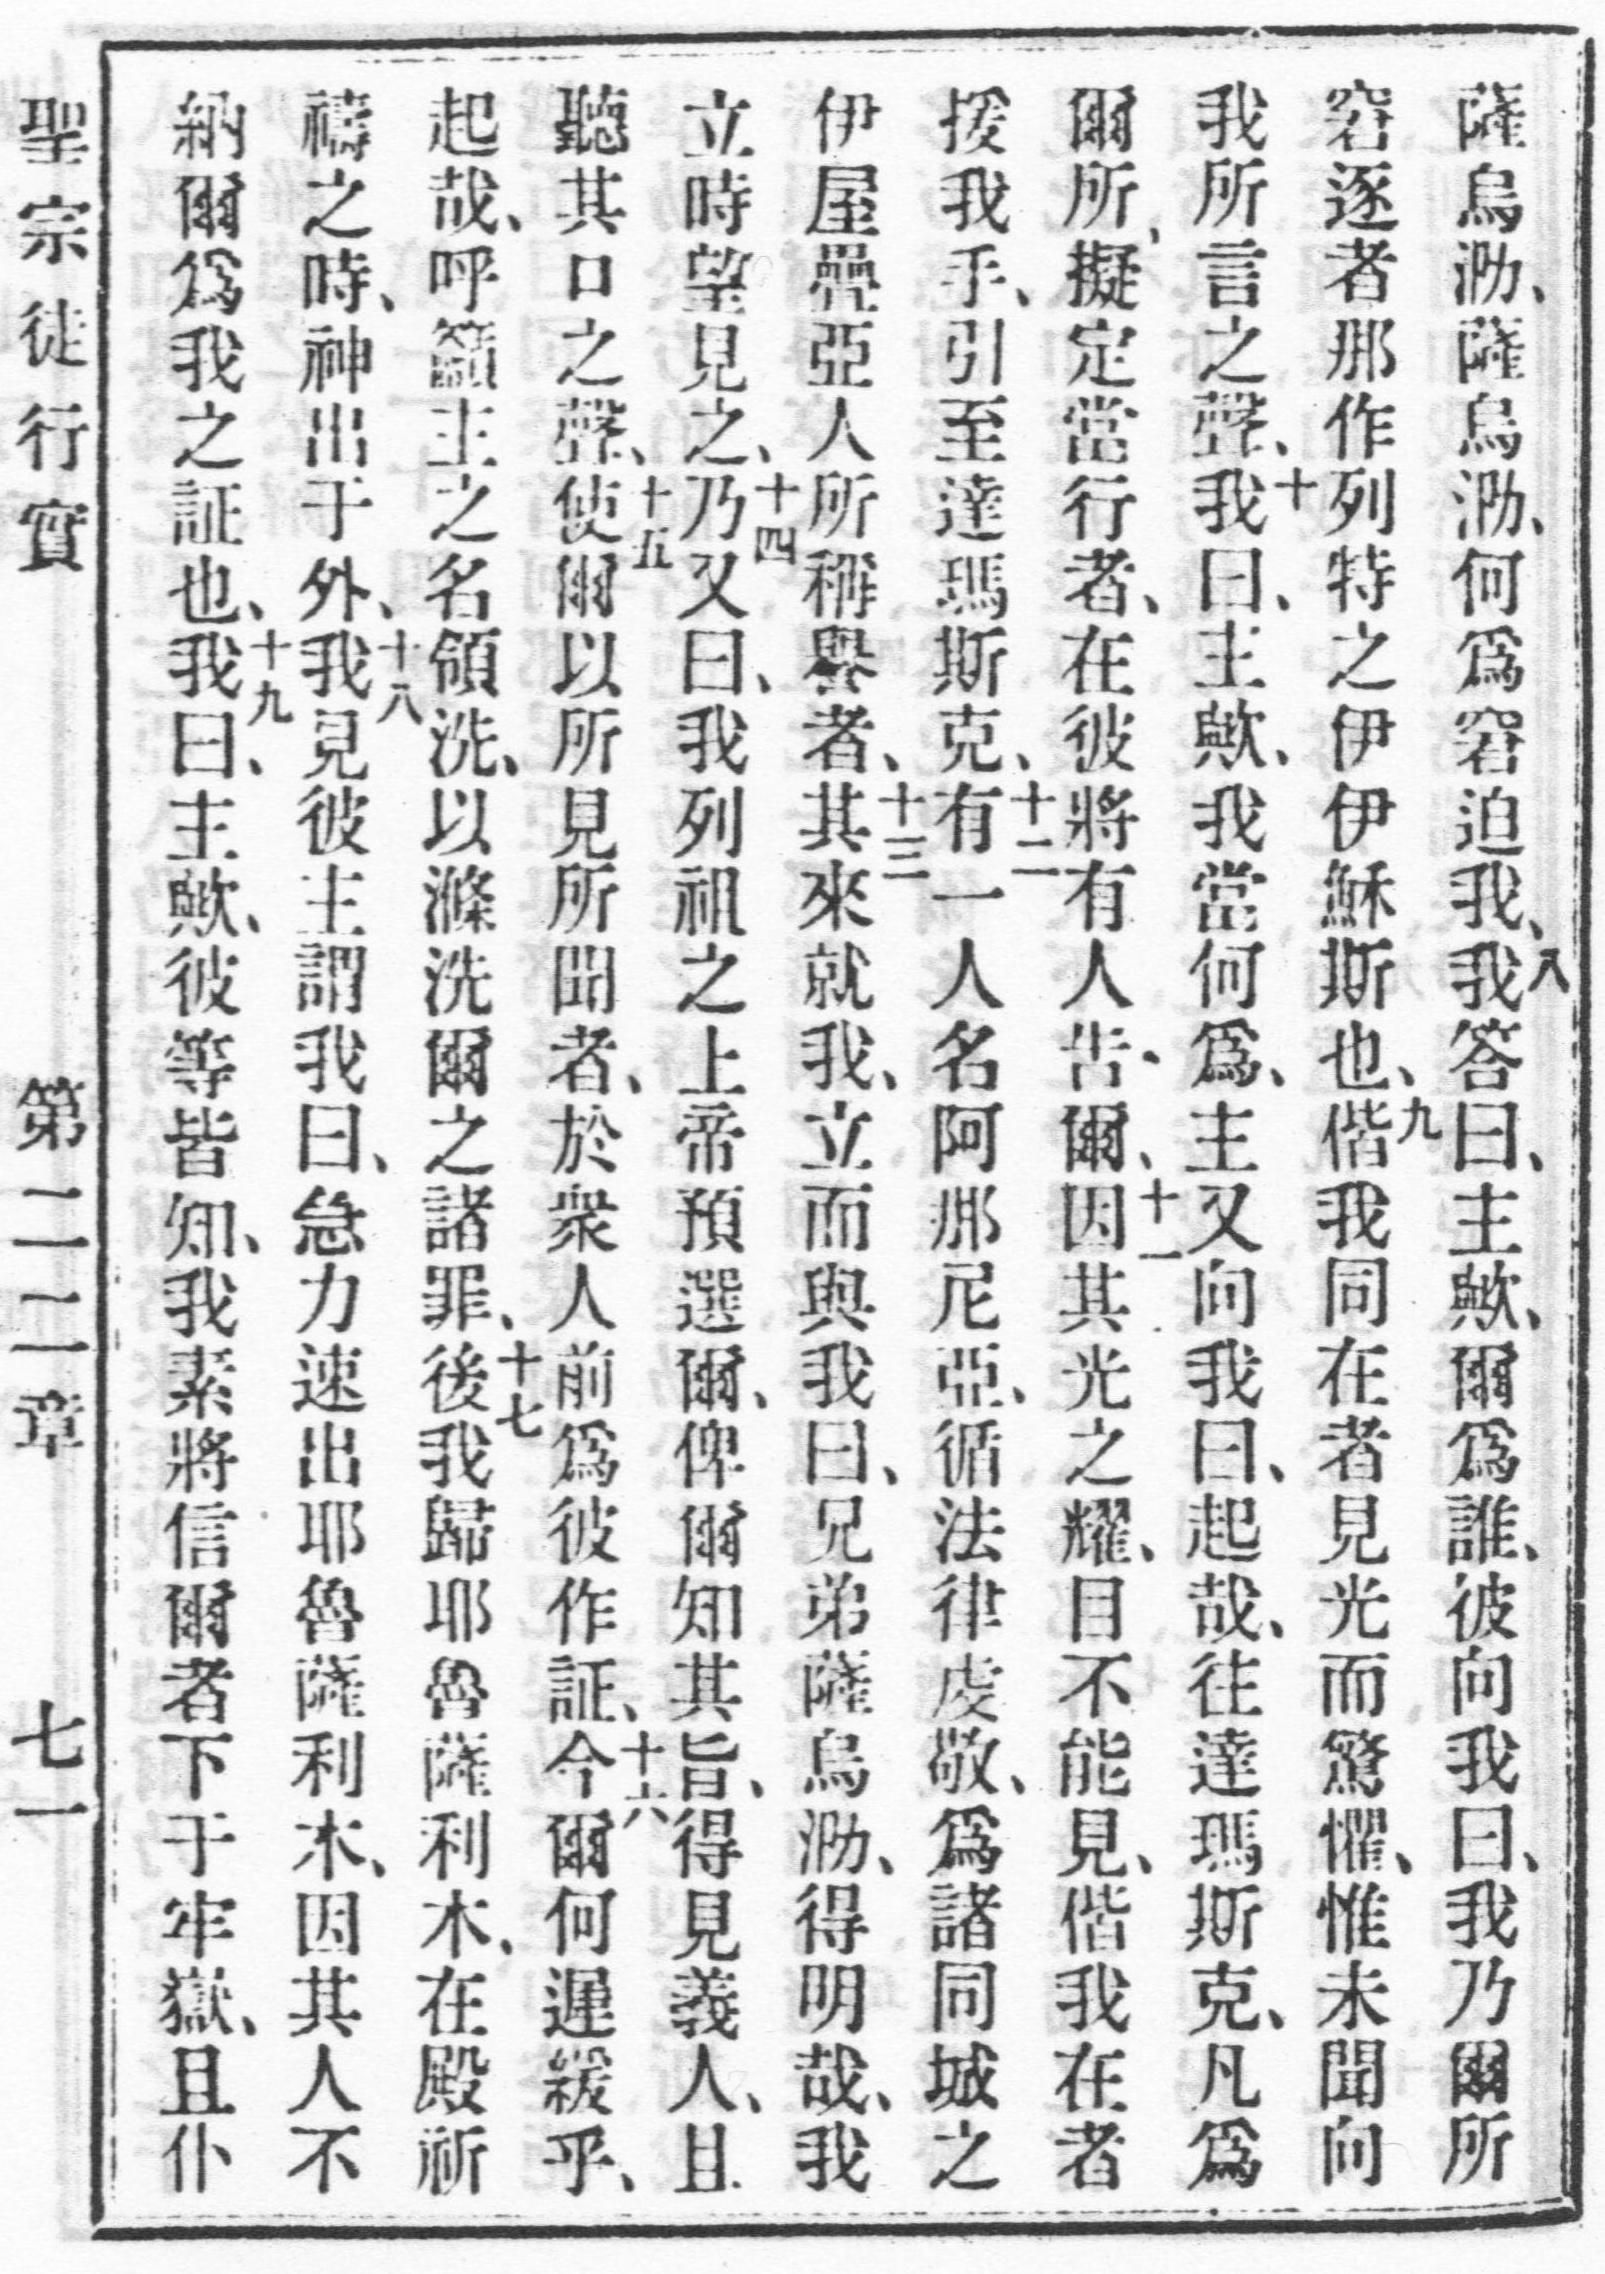 薩烏泐、薩烏泐、何爲窘迫我、八我答曰、主歟、爾爲誰、彼向我曰、我乃爾所
窘逐者那作列特之伊伊穌斯也、九偕我同在者見光而驚懼、惟未聞向
我所言之聲、十我曰、主歟、我當何爲、主又向我曰、起哉、往達瑪斯克、凡爲
爾所擬定當行者、在彼將有人告爾、十一因其光之耀、目不能見、偕我在者
援我手、引至達瑪斯克、十二有一人名阿那尼亞、循法律虔敬、爲諸同城之
伊屋疊亞人所稱譽者、十三其來就我、立而與我曰、兄弟薩烏泐、得明哉、我
立時望見之、十四乃又曰、我列祖之上帝預選爾、俾爾知其旨、得見義人、且
聽其口之聲、十五使爾以所見所聞者、於衆人前爲彼作証、十六今爾何遲緩乎、
起哉、呼籲主之名領洗、以滌洗爾之諸罪、十七後我歸耶魯薩利木、在殿祈
禱之時、神出于外、十八我見彼主謂我曰、急力速出耶魯薩利木、因其人不
納爾爲我之証也、十九我曰、主歟、彼等皆知、我素將信爾者下于牢獄、且仆
聖宗徒行實 第二二章 七一